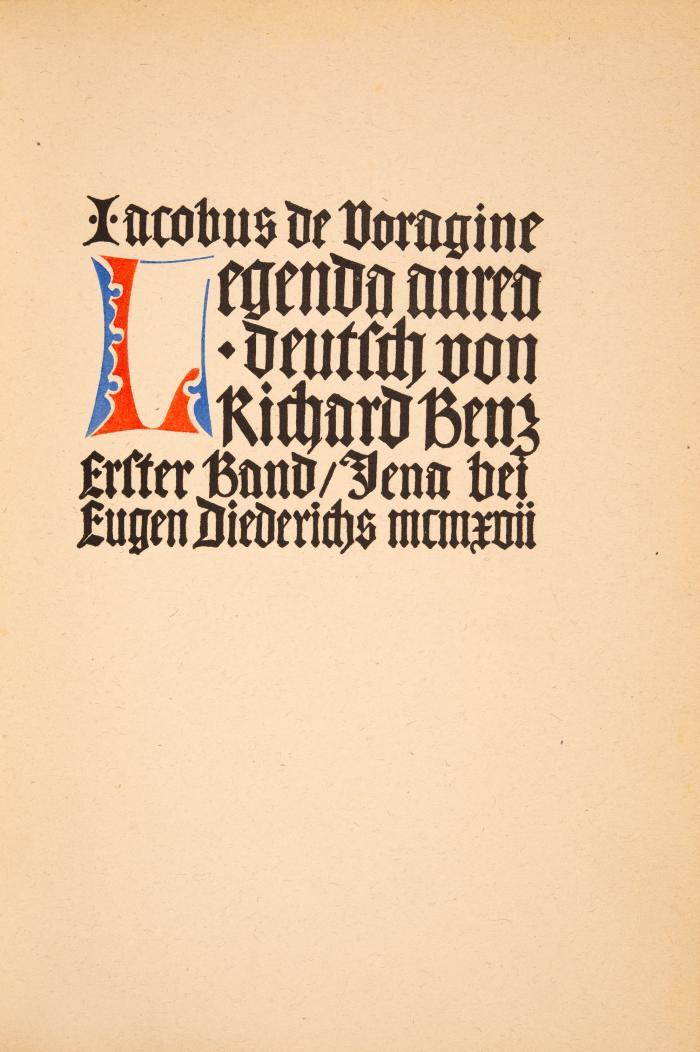 ·Jacobus de Voragine
Legenda aurea
· deutſch von
Richard Benz
Erſter Band/Jena bei
Eugen Diederichs mcmxvii